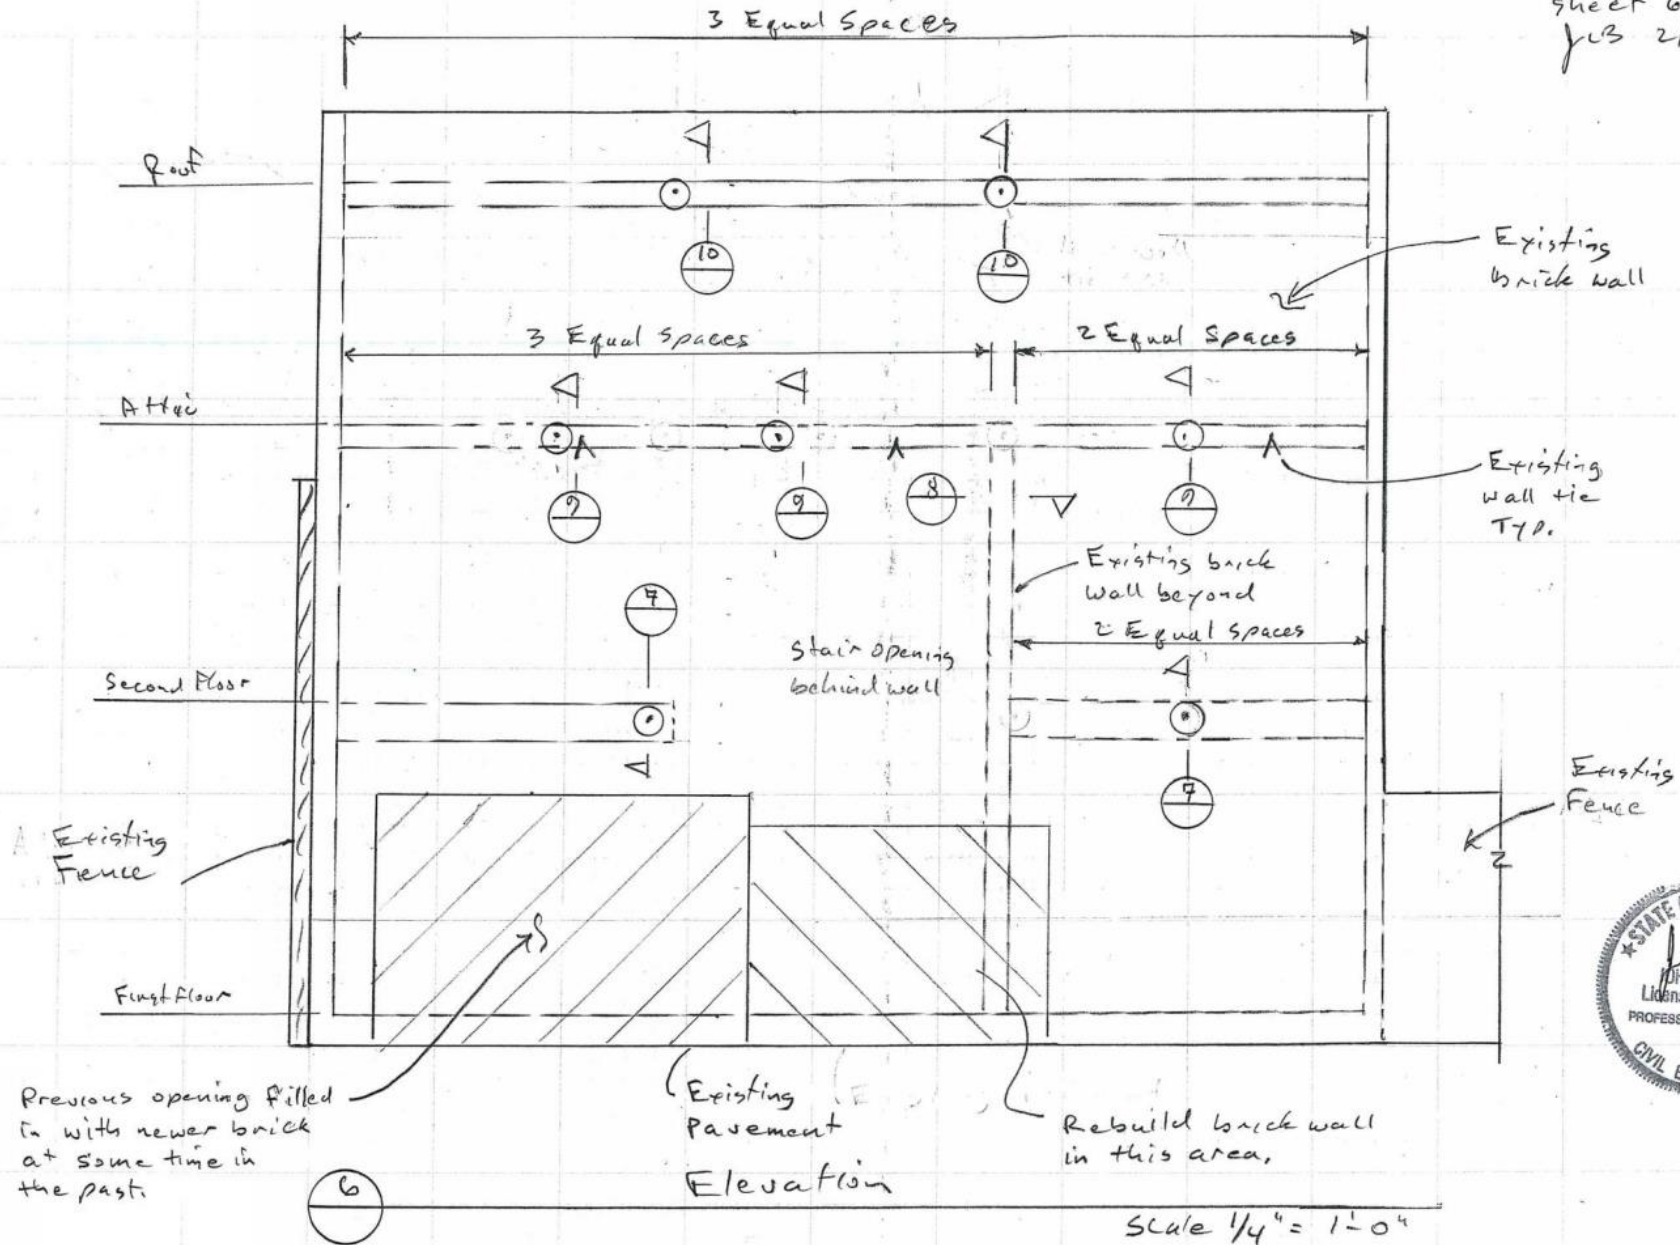 3 Equal Spaces
sheet 6
JCB 2
Roof
10
10
Existing
brick wall
3 Equal Spaces
2 Equal Spaces
Attic
9
9
8
9
Existing
wall tie
Typ.
Existing brick
wall beyond
7
2 Equal Spaces
Stair opening
behind wall
Second Floor
7
Existing
Fence
Existing
Fence
First Floor
STATE
Licens
PROFESS
CIVIL E
Previous opening filled
in with newer brick
at some time in
the past.
Existing
Pavement
Rebuild brick wall
in this area.
6
Elevation
Scale 1/4" = 1'-0"